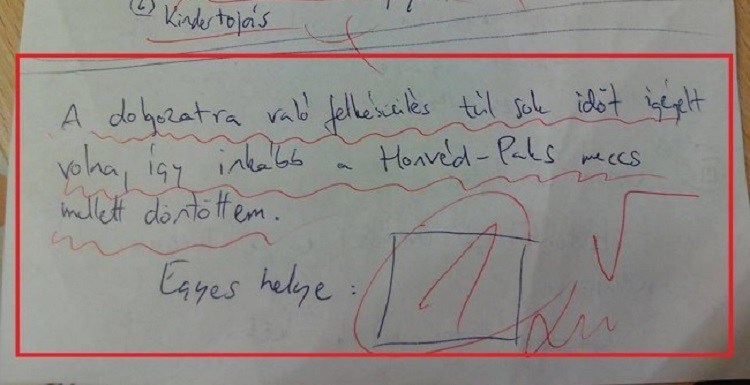 (2)
Kindertojás
A dolgozatra való felkészülés túl sok időt igényelt
volna, így inkább a Honvéd-Paks meccs
mellett döntöttem.
Egyes helye: 1